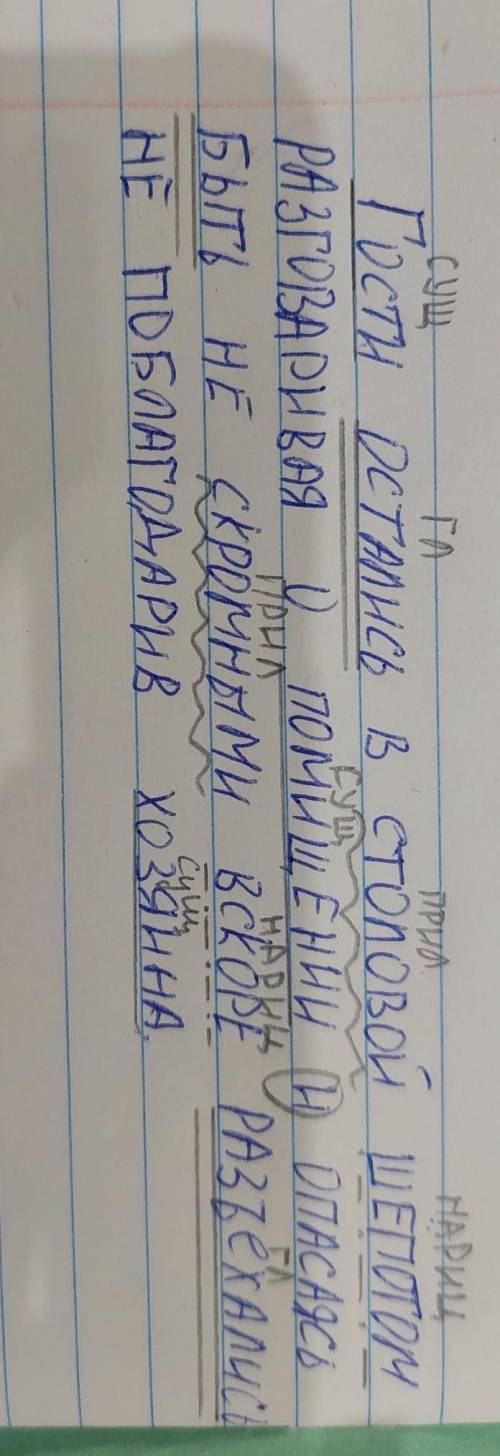 СУЩ ГЛ ПРИЛ НАРИЦ
ГОСТИ ОСТАЛИСЬ В СТОЛОВОЙ ШЕПОТОМ
СУЩ
РАЗГОВАРИВАЯ О ПОМИЩЕНИИ И ОПАСАЯСЬ
ПРИЛ НАРИЦ ГЛ
БЫТЬ НЕ СКРОМНЫМИ ВСКОРЕ РАЗЪЕХАЛИСЬ
СУЩ
НЕ ПОБЛАГОДАРИВ ХОЗЯИНА.